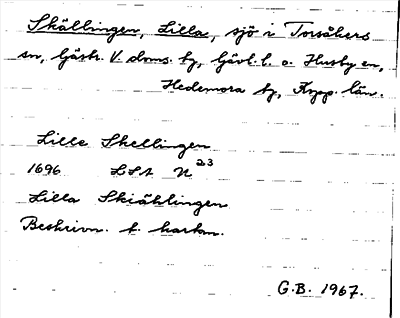 Skällingen, Lilla, sjö i Torsåkers
sn, Gästr. V. doms. fg, Gävl. l. o. Husby sn,
Hedemora fg, Kopp. län.
Lille Skellingen
1696 LSA U 23
Lilla Skiählingen
Beskrivn. t. kartan.
G.B. 1967.